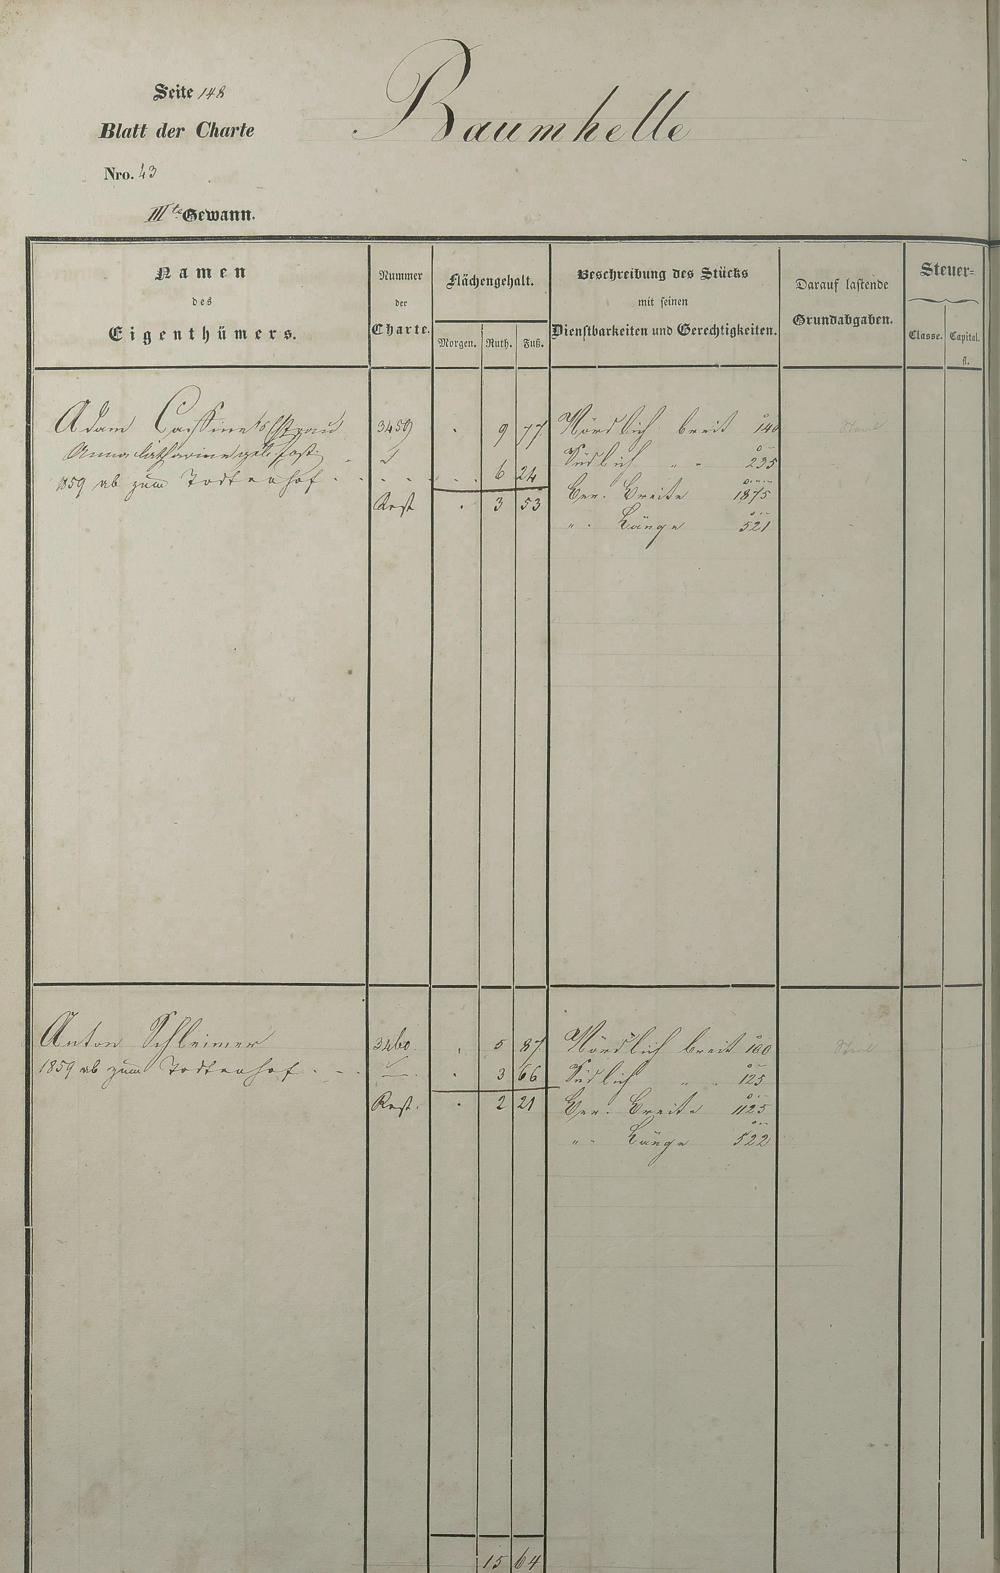 Seite 148
Baumhelle
Blatt der Charte
Nro. 43
IIIte Gewann.
Namen des Eigenthümers.
Nummer der Charte.
Flächengehalt.
Morgen. Ruth. Fuß.
Beschreibung des Stücks mit seinen Dienstbarkeiten und Gerechtigkeiten.
Darauf lastende Grundabgaben.
Steuer=
Classe. Capital. fl.
Adam 3459 . 9 77 Nördlich breit 140
Anna Catharine geb.
6 24 Südlich " " 235
1859 ab zum Todtenhof
Rest . 3 53 Ger. Breite 1875
" " Länge 521
Anton Schleimer 3460. . 5 87 Nördlich breit 100
1859 ab zum Todtenhof . 3 66 Südlich " " 125
Rest. . 2 21 Ger. Breite 1125
" " Länge 522
15 64